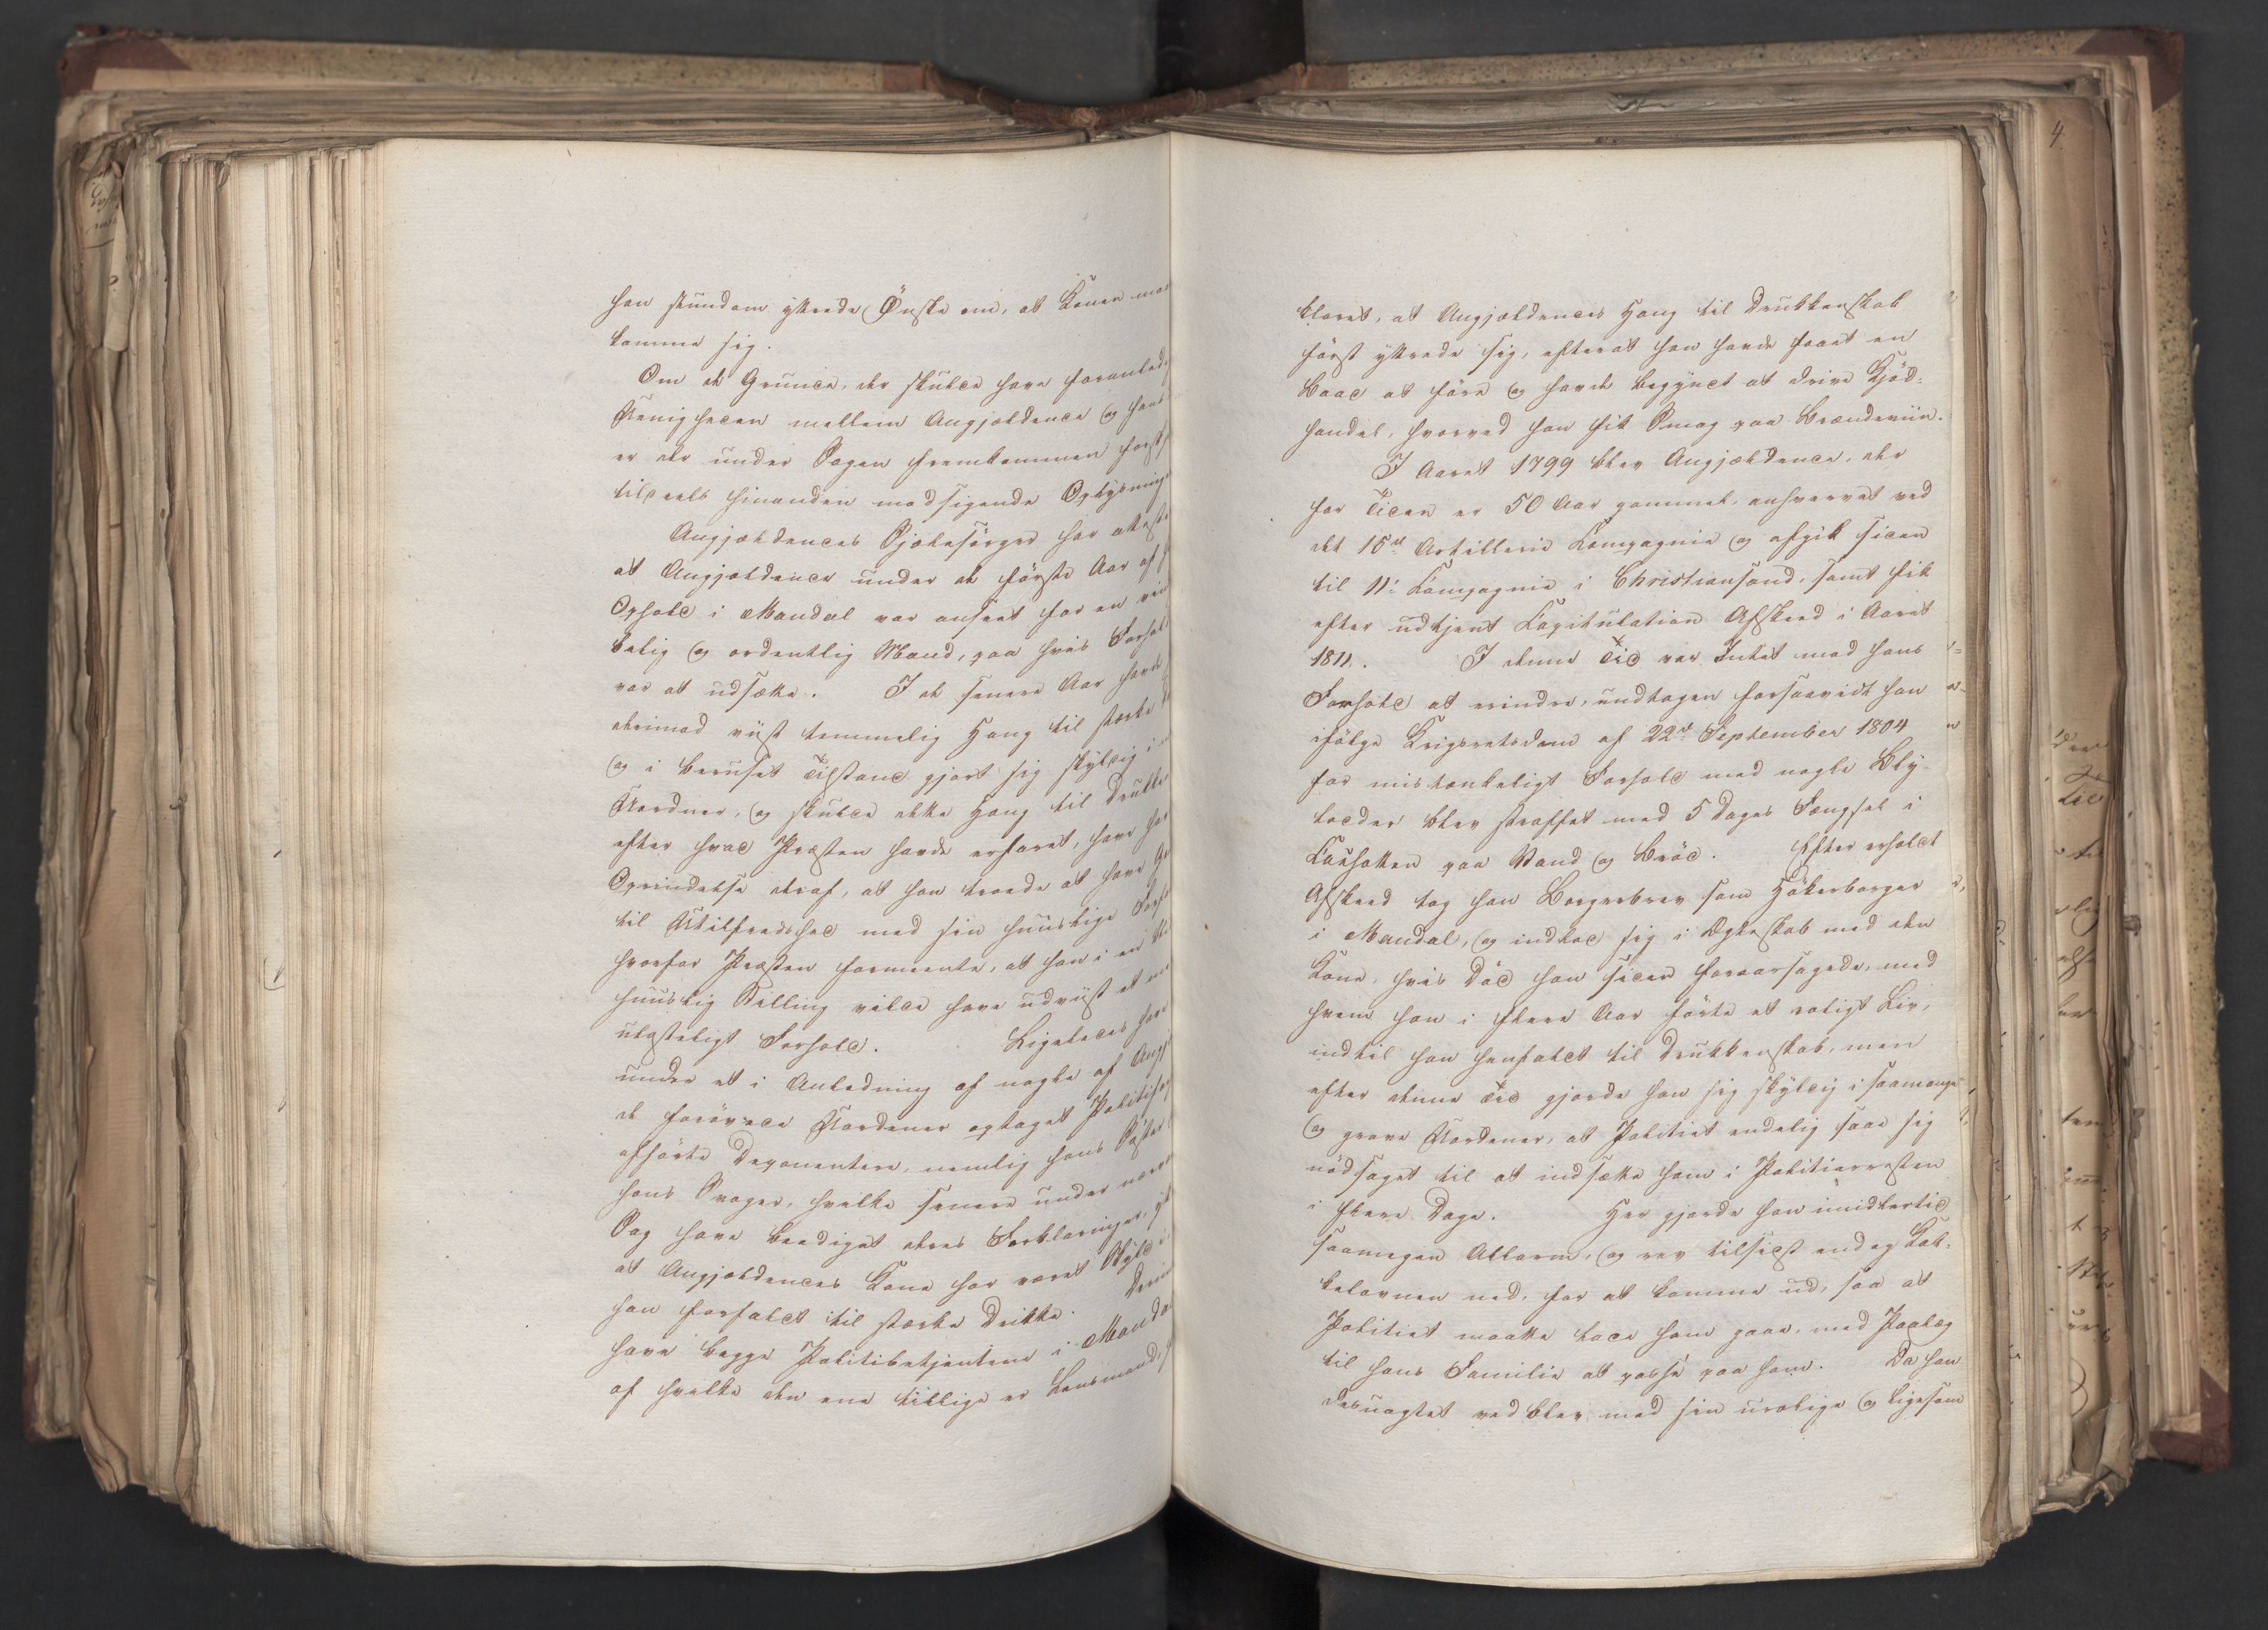 han stundom yttrede Ønske om, at Konen maa
komme sig.
Om de Grunde, der skulde have foranled
Uenigheden mellem Angjeldende og hans
er der under Sagen fremkommen
tildeels hinanden modsigende Oplysninge
Angjeldendes Sjælesørger har atteste
at Angjeldende under de første Aar af
Ophold i Mandal var anseet for en
og ordentlig Mand, paa hvis Forhol
var at udsætte. I de senere Aar havde
derimod viist temmelig Hang til stærke
og i beruset Tilstand gjort sig skyldig i
Uordner, og skulde dette Hang til Drukke
efter hvad Præsten havde erfaret, have
Oprindelse deraf, at han troede at have
til Utilfredshed med sin huuslige
hvorfor Præsten formeente, at han i en
huuslig Stilling vilde have udviist et
ulasteligt Forhold. Ligeledes have
under et i Anledning af nogle af Angj
de forøvede Uordener optaget Politifor
afhørte Deponentere, nemlig hans Søster
hans Svoger, hvilke senere under nærv
Sag have beediget deres Forklaringer,
at Angjeldendes Kone har været Skyld i
han forfaldet til stærke Drikke.
have begge Politibetjentene i Mandal
af hvilke den ene tillige er Lensmand,
klaret, at Angjeldendes Hang til Drukkenskab
først yttrede sig, efterat han havde faaet en
Baad at føre og havde begyndt at drive Kjød-
handel, hvorved han fik Smag paa Brændeviin.
I Aaret 1799 blev Angjeldende, der
for Tiden er 50 Aar gammel, anhvervet ved
det 15de Artillerie Compagnie og afgik siden
til 11te Compagnie i Christiansand, samt fik
efter udtjent Capitulation Afskeed i Aaret
1811. I denne Tid var Intet mod hans
Forhold at erindre, undtagen forsaavidt han
ifølge Krigsretsdom af 22de September 1804
for mistænkeligt Forhold med nogle Bly-
lodder blev straffet med 5 Dages Fængsel i
Kashotten paa Vand og Brød. Efter erholdt
Afskeed tog han Borgerbrev som Høkerborger
i Mandal, og indlod sig i Ægteskab med den
Kone, hvis Død han siden foraarsagede, med
hvem han i flere Aar førte et roligt Liv,
indtil han henfaldt til Drukkenskab, men
efter denne Tid gjorde han sig skyldig i saamange
og grove Uordener, at Politiet endelig saae sig
nødsaget til at indsætte ham i Politiarresten
i flere Dage. Her gjorde han imidlertid
saamegen Allarm, og rev tilsidst endog Kak-
kelovnen ned, for at komme ud, saa at
Politiet maatte lade ham gaae, med Paalæg
til hans Familie at passe paa ham. Da han
desuagtet vedblev med sin urolige og ligesom